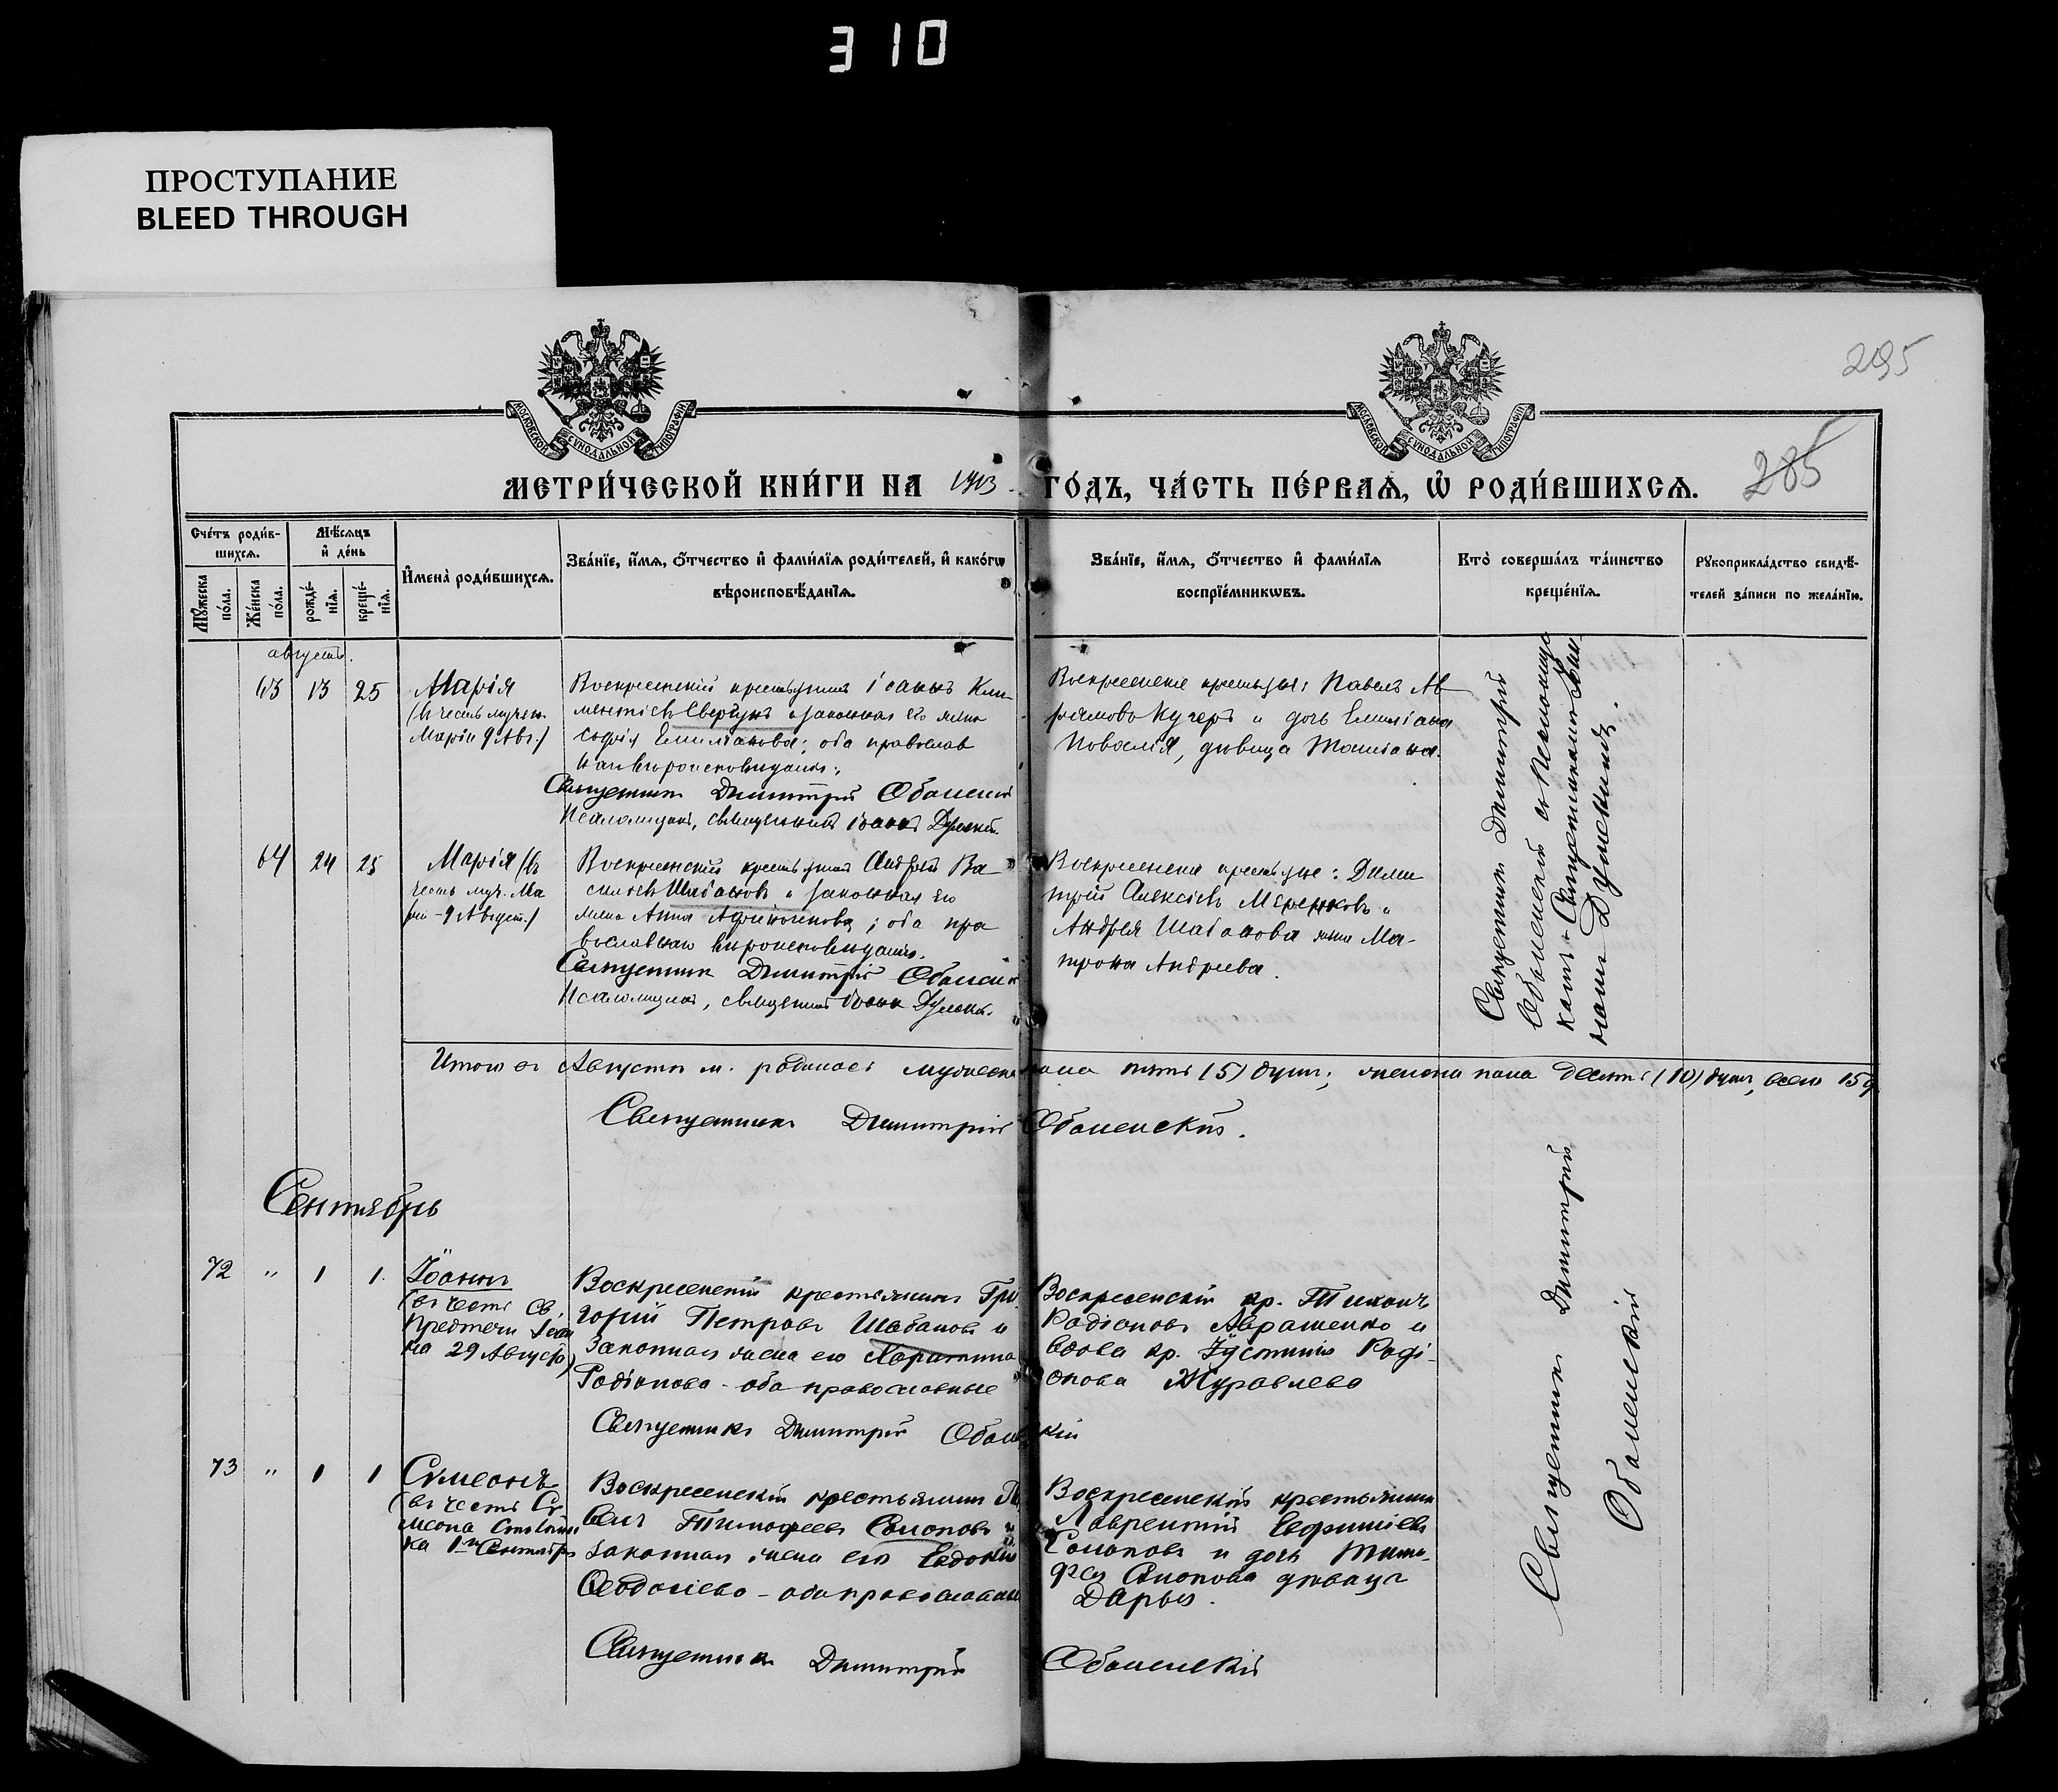 310
ПРОСТУПАНИЕ
BLEED THROUGH
МОСКОВСКОЙ СѴНОДАЛЬНОЙ ТИПОГРАФІИ
МОСКОВСКОЙ СѴНОДАЛЬНОЙ ТИПОГРАФІИ
295
285
МЕТРИ́ЧЕСКОЙ КНИ́ГИ НА 1913 ГО́ДЪ, ЧА́СТЬ ПЕ́РВАѦ, Ѡ҆ РОДИ́ВШИХСѦ.
Сче́тъ роди́в-
шихсѧ.
Мѣ́сѧцъ
и҆ де́нь
Мꙋ́жеска
по́ла.
Же́нска
по́ла.
рожде́-
нїѧ.
креще́-
нїѧ.
И҆мена̀ роди́вшихсѧ.
Зва́нїе, и҆́мѧ, ѻ҆́тчество и҆ фами́лїѧ роди́телей, и҆ како́гѡ
вѣроисповѣ́данїѧ.
Зва́нїе, и҆́мѧ, ѻ҆́тчество и҆ фами́лїѧ
воспрїе́мникѡвъ.
Кто̀ соверша́лъ та́инство
креще́нїѧ.
Рꙋкоприкла́дство свидѣ́-
телей за́писи по жела́нїю.
августъ.
63 13 25
Марія
(въ честь мучен.
Маріи 9 Авг.)
Воскресенскій крестьянинъ Іоаннъ Кли-
ментіевъ Свергунъ и законная его жена
Софія Емиліанова; оба православ
наго вѣроисповѣданія.
Священникъ Димитрій Оболенскій
Псаломщикъ, священникъ Іоаннъ
Воскресенскіе крестьяне: Павелъ Ав
рамовъ Кучеръ и дочь Емиліана
дѣвица Татіана.
Священникъ Димитрій
Оболенскій съ псаломщи
комъ священникомъ Іоан
номъ
64 24 25
Марія (въ
честь муч. Ма
ріи - 9 Август.)
Воскресенскій крестьянинъ Андрей Ва-
сильевъ Шабановъ и законная его
жена Анна ; оба пра
вославнаго вѣроисповѣданія.
Священникъ Димитрій Оболенскій
Псаломщикъ, священникъ Іоаннъ
Воскресенскіе крестьяне: Дими
трій Алексіевъ и
Андрея Шабанова жена Ма-
трона Андреева.
Итого въ Августѣ м. родилось мужеска пола пять (5) душъ; женска пола десять (10) душъ, всего 15 д.
Священникъ Димитрій Оболенскій.
Сентябрь
72 " 1 1
Іоаннъ
(въ честь Св.
Предтечи Іоан
на 29 Августа)
Воскресенскій крестьянинъ Гри-
горій Петровъ Шабановъ и
Законная жена его Харитина
Родіонова - оба православные
Священникъ Димитрій Оболенскій
Воскресенскій кр. Тихонъ
Родіоновъ Аврашенко и
вдова кр. Іустинія Роді-
онова Журавлева
Священникъ Димитрій
Оболенскій
73 " 1 1
Симеонъ
(въ честь Си
меона Столпни
ка 1го Сентября
Воскресенскій крестьянинъ Па
велъ Тимофеевъ Солоповъ и
законная жена его Евдокія
Ѳеодосіева - оба православные
Священникъ Димитрій Оболенскій
Воскресенскій крестьянинъ
Лаврентій Евфиміевъ
Солоповъ и дочь Тимо-
фея Солопова дѣвица
Дарья.